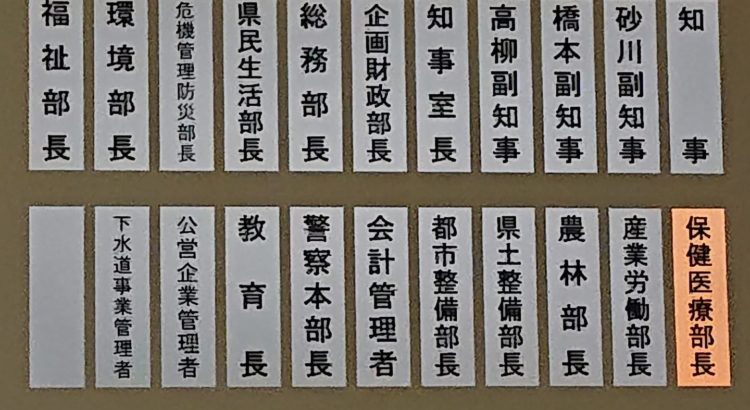 知事
砂川副知事
橋本副知事
高柳副知事
知事室長
企画財政部長
総務部長
県民生活部長
危機管理防災部長
環境部長
福祉部長
保健医療部長
産業労働部長
農林部長
県土整備部長
都市整備部長
会計管理者
警察本部長
教育長
公営企業管理者
下水道事業管理者